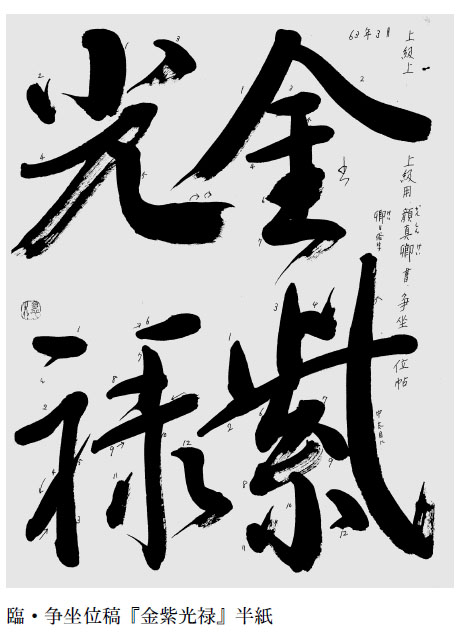 上級上
上級用 顔真卿書・争坐位帖
63年3月
金紫
光禄
臨・争坐位稿『金紫光禄』半紙